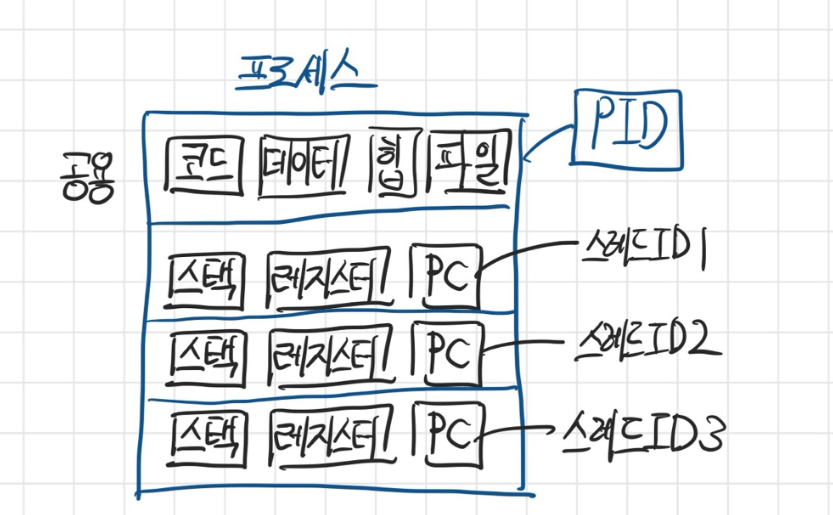 프로세스
PID
공용 코드 데이터 힙 파일
스택 레지스터 PC 스레드ID1
스택 레지스터 PC 스레드ID2
스택 레지스터 PC 스레드ID3